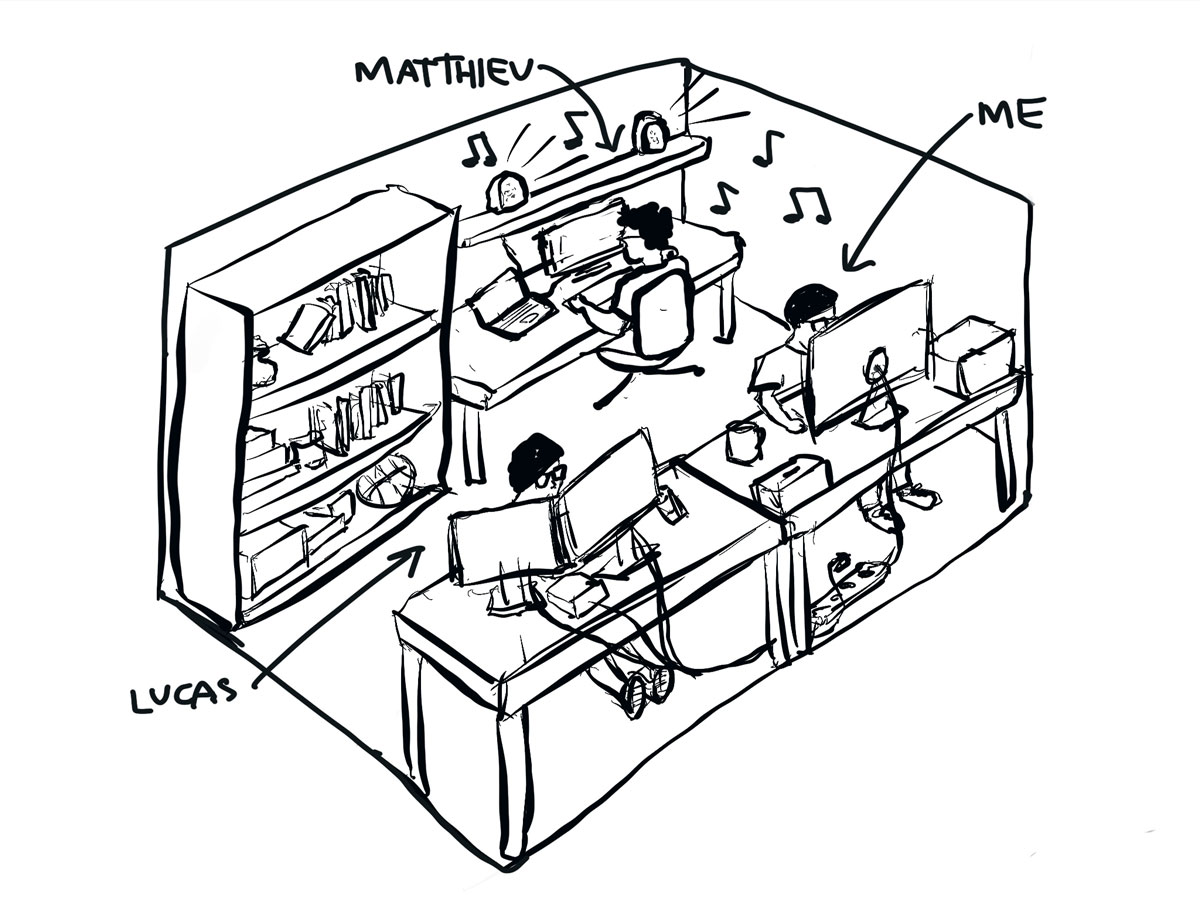 MATTHIEU
ME
LUCAS